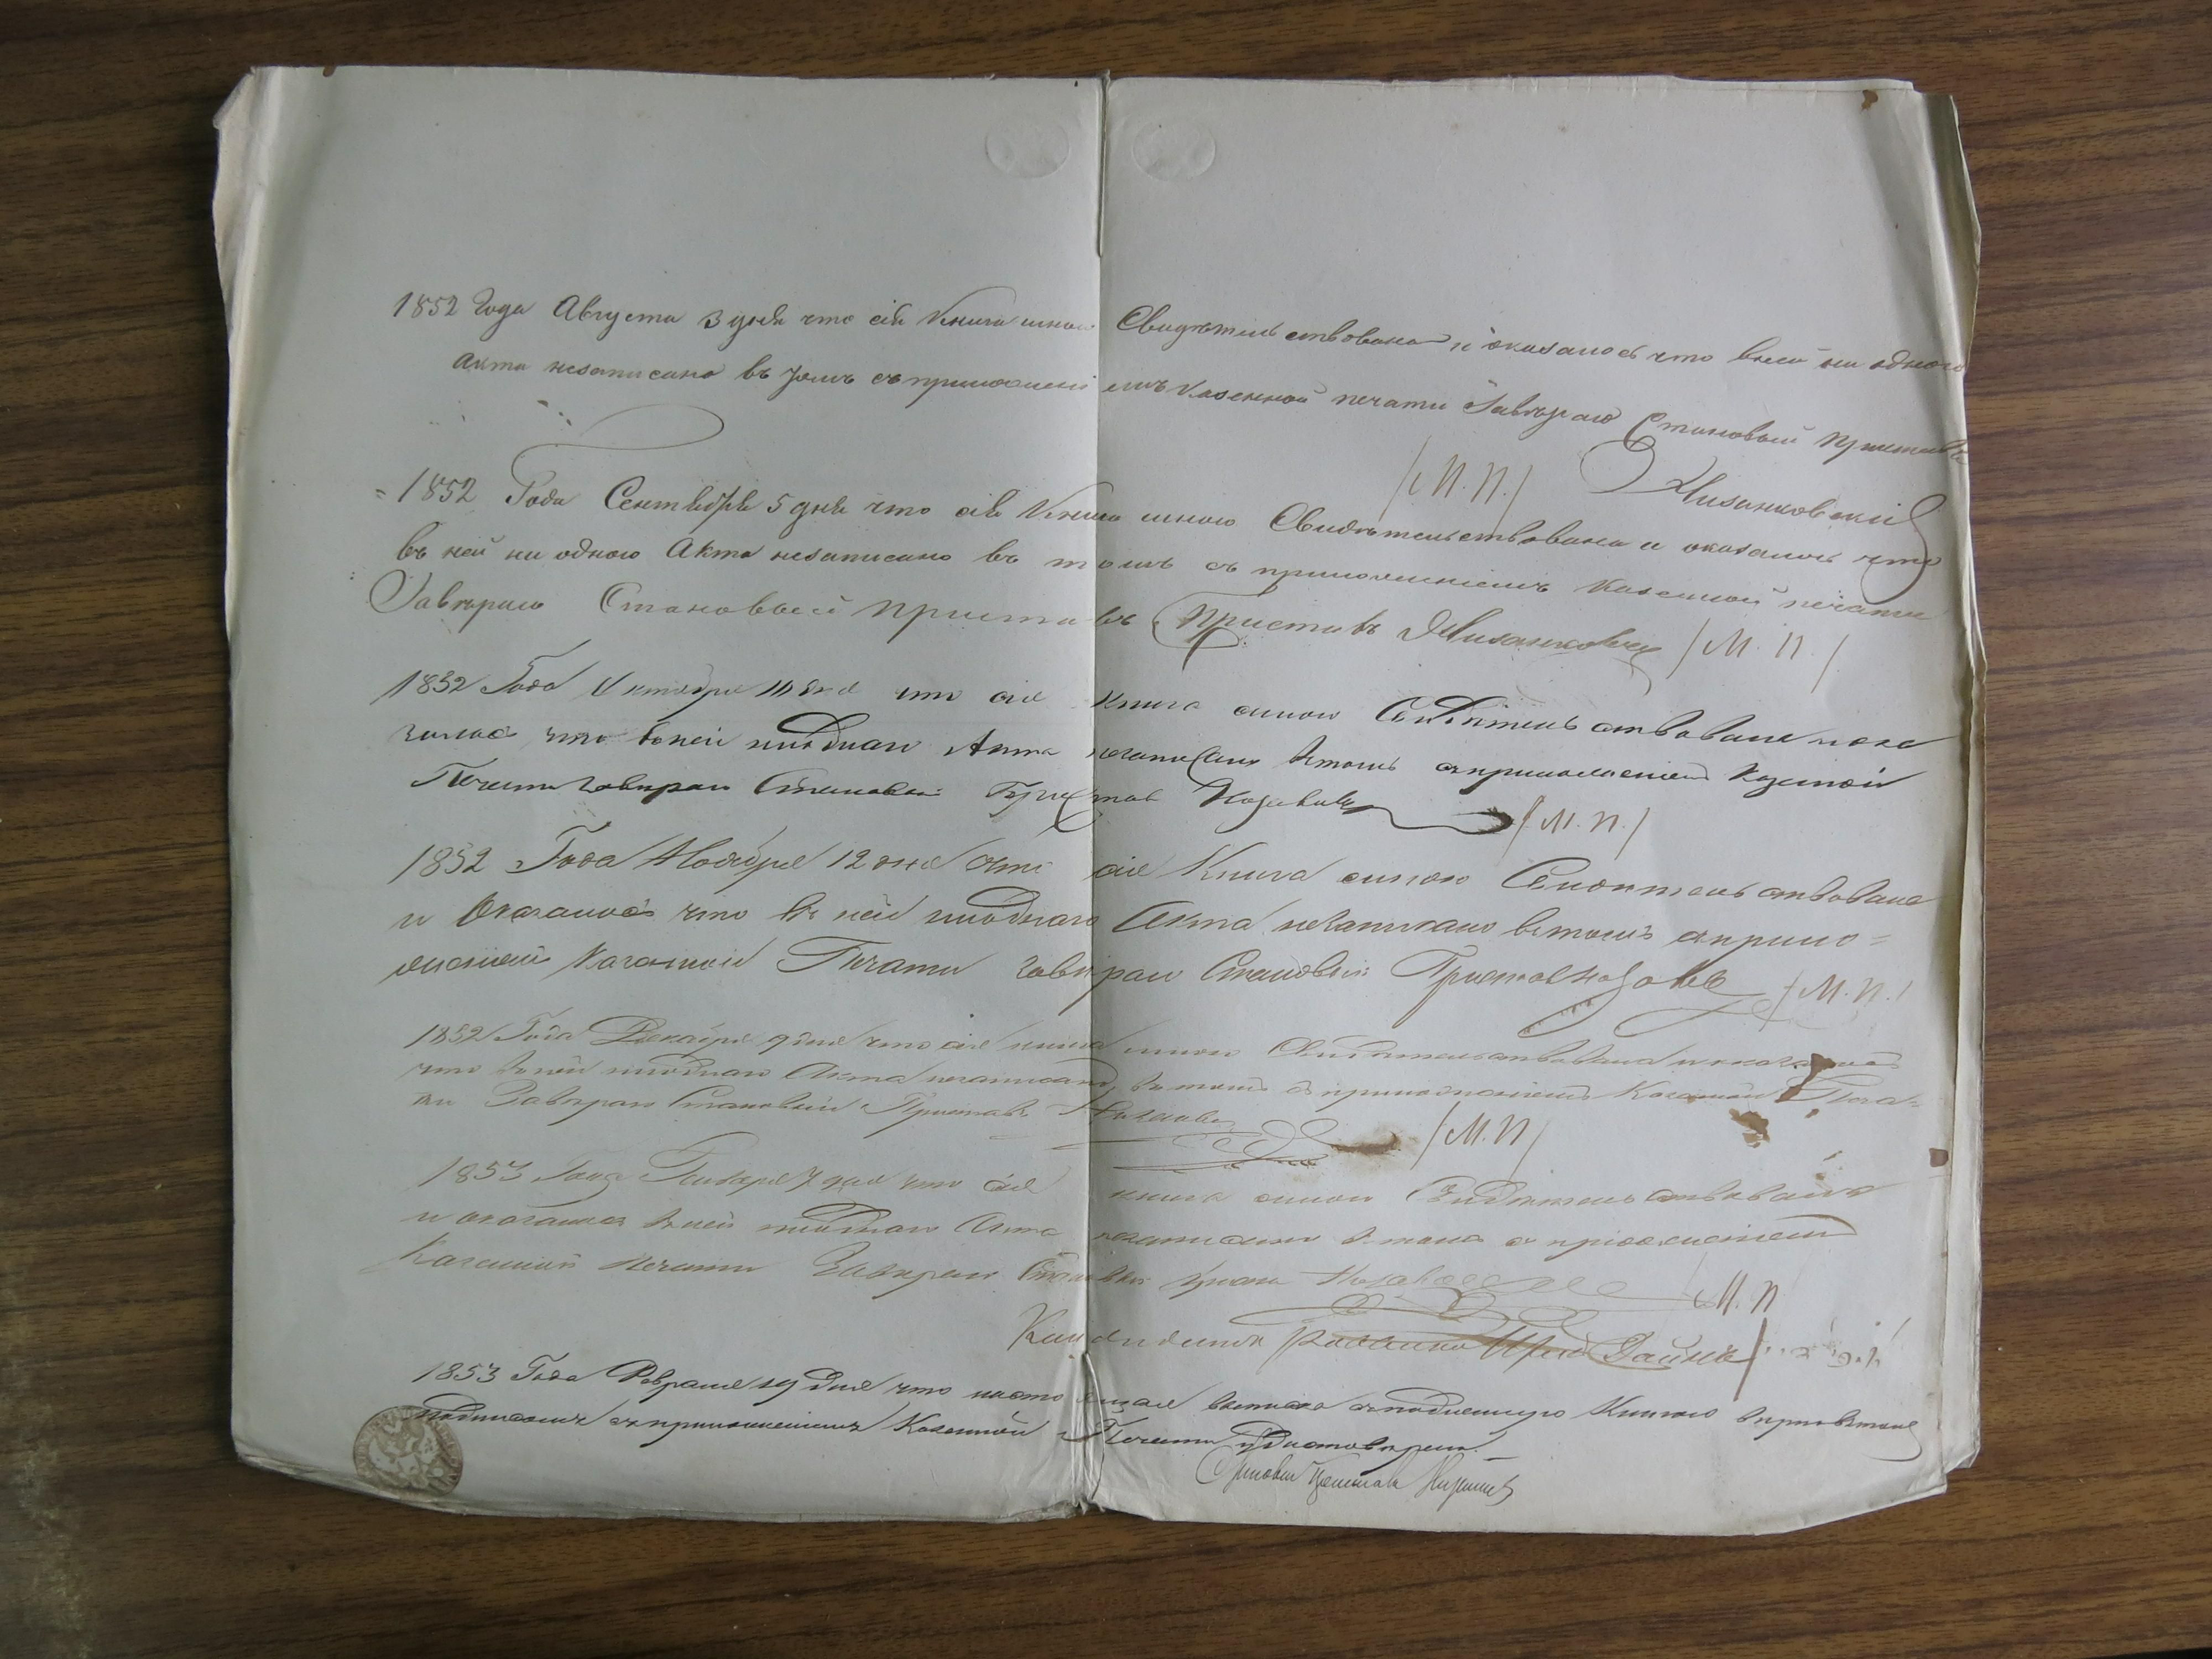 1852 Года Августа 3 дня что сія Книга мною Свидѣтельствована и оказалось что в ней ни одного
Акта незаписано въ томъ съ приложеніемъ Казенной печати Завѣряю Становый Приставъ
/М.П./
1852 Года Сентября 5 дня что сія Книга мною Свидѣтельствована и оказалось что
въ ней ни одного Акта незаписано въ томъ съ приложеніемъ Казенной печати
Завѣряю Становый Приставъ Приставъ /М.П./
1852 Года Октября 10 дня что сія книга мною Свидѣтельствована и ока
залось что в ней ниодного Акта незаписано втомъ съ приложеніемъ Казенной
Печати завѣряю Становой Пристав /М.П./
1852 Года Ноября 12 дня что сія Книга мною Свидѣтельствована
и Оказалось что въ ней ниодного Акта незаписано втомъ съ прило=
женіемъ Казенной Печати завѣряю Становый Пристав /М.П./
1852 Года Декабря 9 дня что сія книга мною Свидѣтельствована и оказалось
что в ней ниодного Акта незаписано, в томъ съ приложеніемъ Казенной Печа=
ти Завѣряю Становый Приставъ /М.П/
1853 Года Генваря 7 дня что сія книга мною Свидѣтельствована
и оказалось в ней ниодного Акта незаписано в томъ съ приложеніемъ
Казенной Печати Завѣряю /М.П
1853 Года Февраля 19 дня что настоящая выписка съ подлинную Книгою вѣрна втомъ
подписомъ съ приложеніемъ Казенной Печати удостовѣряю.